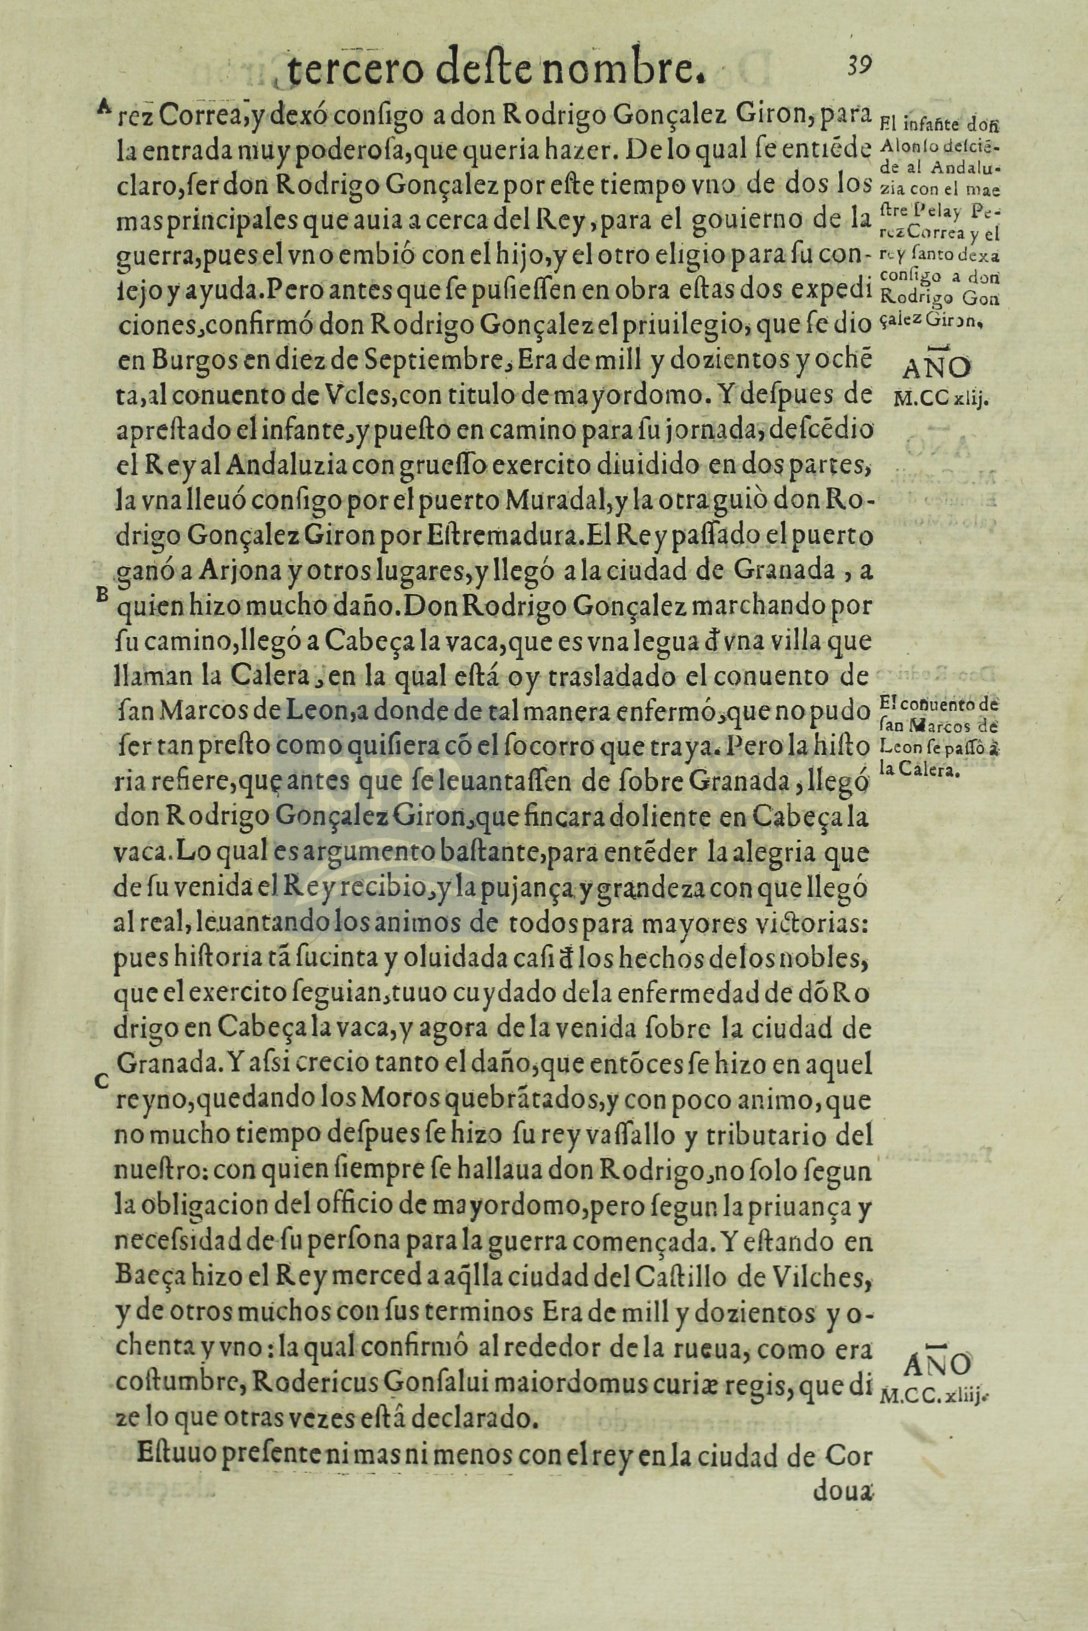 tercero deſte nombre.
39
A
rez Correa, y dexó conſigo a don Rodrigo Gonçalez Giron, para
la entrada muy poderoſa, que queria hazer. De lo qual ſe entiẽde
claro, ſer don Rodrigo Gonçalez por eſte tiempo vno de dos los
mas principales que auia a cerca del Rey, para el gouierno de la
guerra, pues el vno embió con el hijo, y el otro eligio para ſu con-
ſejo y ayuda. Pero antes que ſe puſieſſen en obra eſtas dos expedi
ciones, confirmó don Rodrigo Gonçalez el priuilegio, que ſe dio
en Burgos en diez de Septiembre, Era de mill y dozientos y ochẽ
ta, al conuento de Vcles, con titulo de mayordomo. Y deſpues de
apreſtado el infante, y pueſto en camino para ſu jornada, deſcẽdio
el Rey al Andaluzia con grueſſo exercito diuidido en dos partes,
la vna lleuó conſigo por el puerto Muradal, y la otra guiò don Ro-
drigo Gonçalez Giron por Eſtremadura. El Rey paſſado el puerto
ganó a Arjona y otros lugares, y llegó a la ciudad de Granada, a
B
quien hizo mucho daño. Don Rodrigo Gonçalez marchando por
ſu camino, llegó a Cabeça la vaca, que es vna legua đ vna villa que
llaman la Calera, en la qual eſtá oy trasladado el conuento de
ſan Marcos de Leon, a donde de tal manera enfermó, que no pudo
ſer tan preſto como quiſiera cõ el ſocorro que traya. Pero la hiſto
ria refiere, que antes que ſe leuantaſſen de ſobre Granada, llegó
don Rodrigo Gonçalez Giron, que fincara doliente en Cabeça la
vaca. Lo qual es argumento baſtante, para entẽder la alegria que
de ſu venida el Rey recibio, y la pujança y grandeza con que llegó
al real, leuantando los animos de todos para mayores victorias:
pues hiſtoria tã ſucinta y oluidada caſi đ los hechos de los nobles,
que el exercito ſeguian, tuuo cuydado dela enfermedad de dõ Ro
drigo en Cabeça la vaca, y agora de la venida ſobre la ciudad de
Granada. Y aſsi crecio tanto el daño, que entõces ſe hizo en aquel
C
reyno, quedando los Moros quebrãtados, y con poco animo, que
no mucho tiempo deſpues ſe hizo ſu rey vaſſallo y tributario del
nueſtro: con quien ſiempre ſe hallaua don Rodrigo, no ſolo ſegun
la obligacion del officio de mayordomo, pero ſegun la priuança y
neceſsidad de ſu perſona para la guerra començada. Y eſtando en
Baeça hizo el Rey merced a aq̃lla ciudad del Caſtillo de Vilches,
y de otros muchos con ſus terminos Era de mill y dozientos y o-
chenta y vno: la qual confirmó al rededor de la rueua, como era
coſtumbre, Rodericus Gonſalui maiordomus curiæ regis, que di
ze lo que otras vezes eſtâ declarado.
Eſtuuo preſente ni mas ni menos con el rey en la ciudad de Cor
doua
El infante don
Alonſo deſciẽ-
de al Andalu-
zia con el mae
ſtre Pelay Pe-
rez Correa y el
rey ſanto dexa
conſigo a don
Rodrigo Gon
çalez Giron.
AÑO
M.CC xlij.
El conuento de
ſan Marcos de
Leon ſe paſſó à
la Calera.
AÑO
M.CC.xliij.